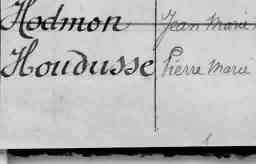 Hodmon Jean Marie
Houdusse Pierre Marie